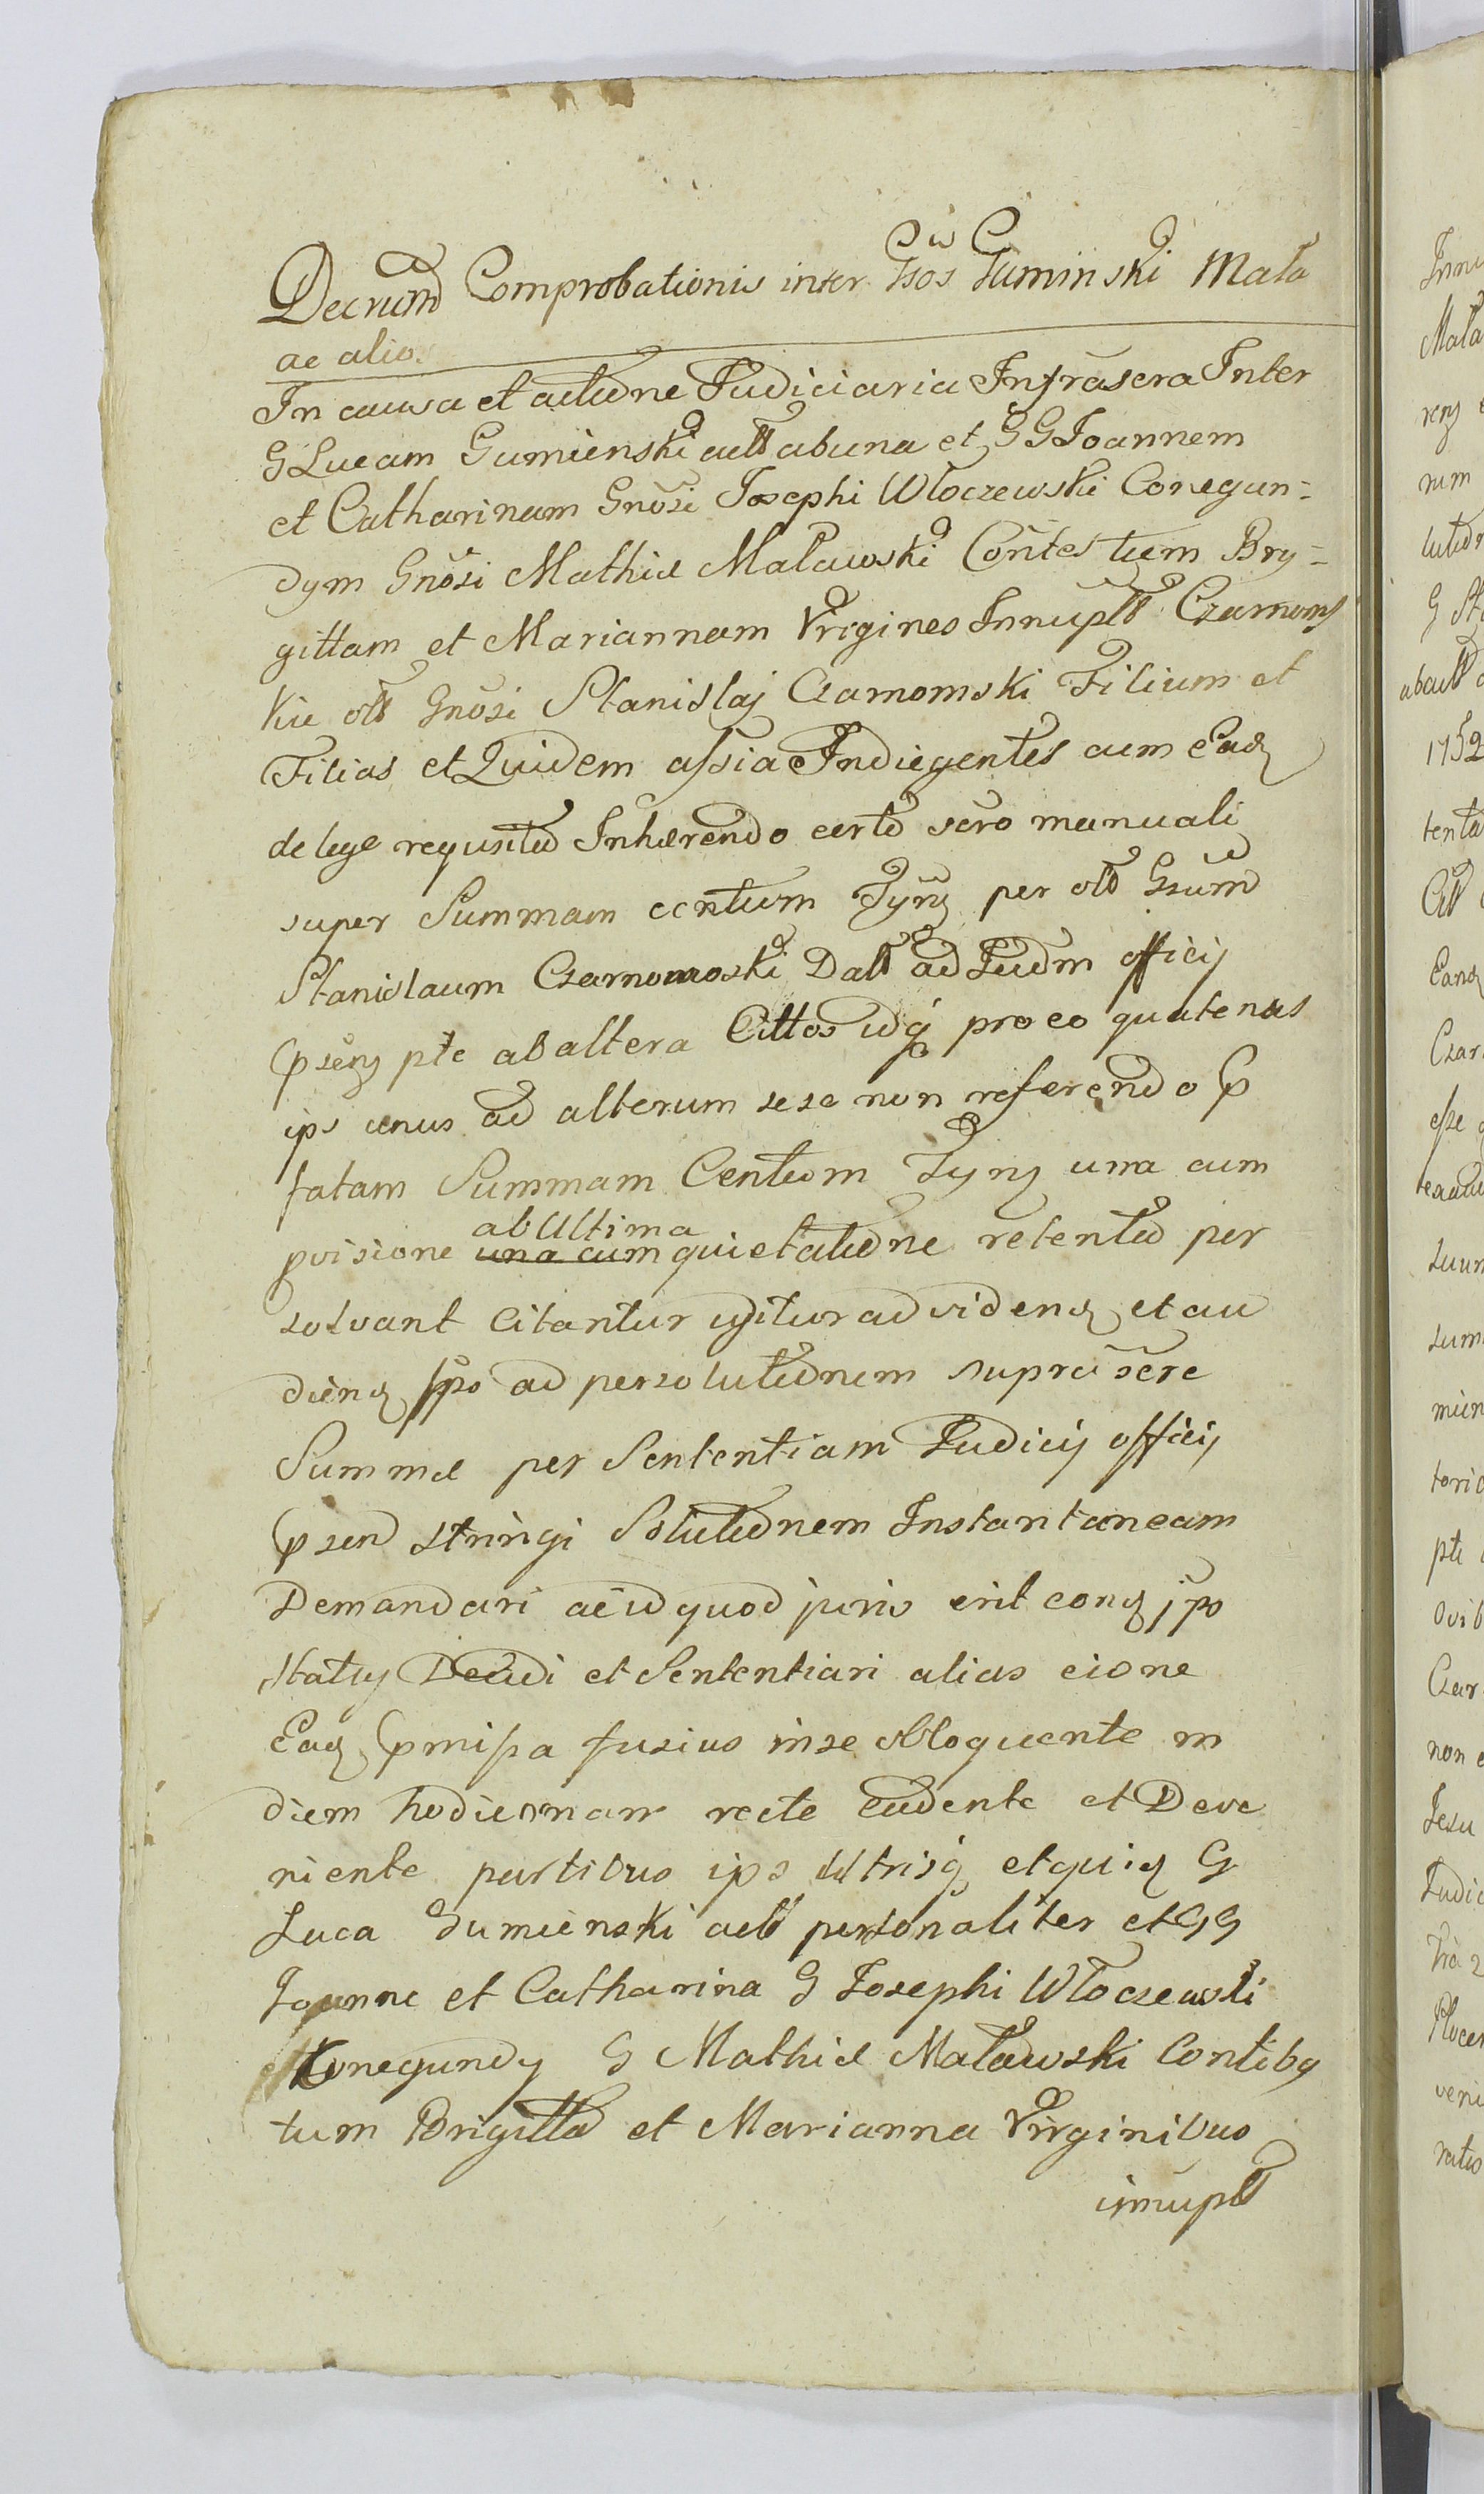 Decrum Comprobationis inter Gsos Guminski Mała
ac alios
In causa et actione Judiciaria Infrascra Inter
G Lucam Gumienski actt ab una et GG Joannem
et Catharinam Gnosi Josephi Włoczewski Conegun=
dym Gnosi Mathiæ Maławski Contes tum Bry=
gittam et Mariannam Virgines Innuptt Czarnoms
kie ott Gnosi Stanislaj Czarnomski Filium et
Filias et Quidem assia Indiegentes cum Eadz
de lege requisita Inhærendo certo scro manuali
super Summam centum Tynz per ott Gsum
Stanislaum Czarnomoski Datt ad Judm officij
psenz pte ab altera Cittos idq pro eo quatenus
ips unus ad alterum sese non referendo p
fatam Summam Centum Tynz una cum
pvisione una cum quietatione retenta per
ab Ultima
solvant Citantur igitur ad videnz et au
dienz Ipso ad persolutionem supra scre
Summæ per Sententiam Judicij officij
psen stringi Solutionem Instantaneam
Demandari ac id quod juris erit conz ipo
Statuj Decidi et Sententiari alias cione
Eaz pmissa fusius in se obloquente in
diem hodiernam recte cadente et Deve
niente partibus ips Utrisq et quiz G
Luca Gumienski actt personaliter et GG
Joanne et Catharina G Josephi Włoczewski
Konegundy G Mathiæ Maławski Contibq
tum Brigitta et Marianna Virginibus
innuptt
Innu
Mała
renz
num
lution
G St
ab actt
1752
tenta
Citt
Eand
Czar
esse
summ
mien
torio
pte
ovib
Czar
non e
Jesu
Judic
Plocen
veni
ratio